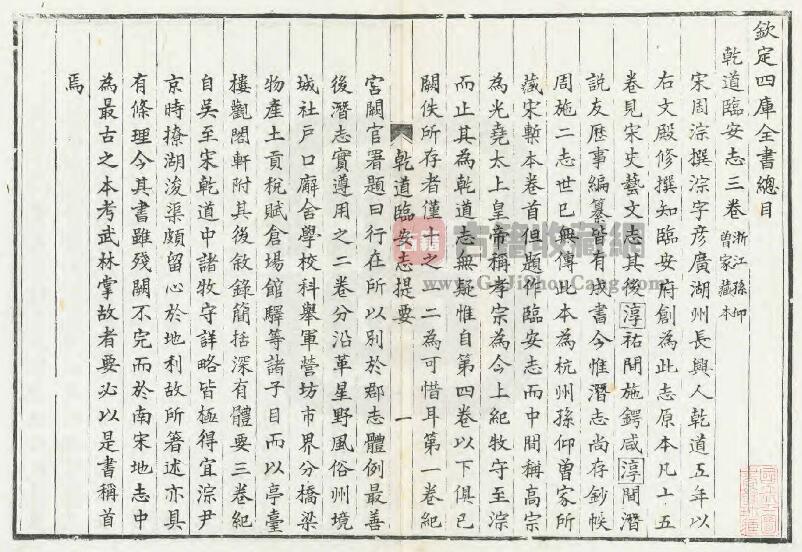 欽定四庫全書總目
乾道臨安志三卷浙江孫仰曾家藏本
宋周淙撰淙字彥廣湖州長興人乾道五年以
右文殿修撰知臨安府創為此志原本凡十五
卷見宋史藝文志其後淳祐間施鍔咸淳間潛
說友歷事編纂皆有成書今惟潛志尚存鈔帙
周施二志世已無傳此本為杭州孫仰曾家所
藏宋槧本卷首但題作臨安志而中間稱高宗
為光堯太上皇帝稱孝宗為今上紀牧守至淙
而止其為乾道志無疑惟自第四卷以下俱已
闕佚所存者僅十之一二為可惜耳第一卷紀
乾道臨安志提要
一
宮闕官署題曰行在所以別於郡志體例最善
後潛志實遵用之二卷分沿革星野風俗州境
城社戶口廨舍學校科舉軍營坊市界分橋梁
物產土貢稅賦倉場館驛等諸子目而以亭臺
樓觀閣軒附其後敘錄簡括深有體要三卷紀
自吳至宋乾道中諸牧守詳略皆極得宜淙尹
京時撩湖浚渠頗留心於地利故所著述亦具
有條理今其書雖殘闕不完而於南宋地志中
為最古之本考武林掌故者要必以是書稱首
焉
古籍
古籍收藏網
GuJiShouCang.Com